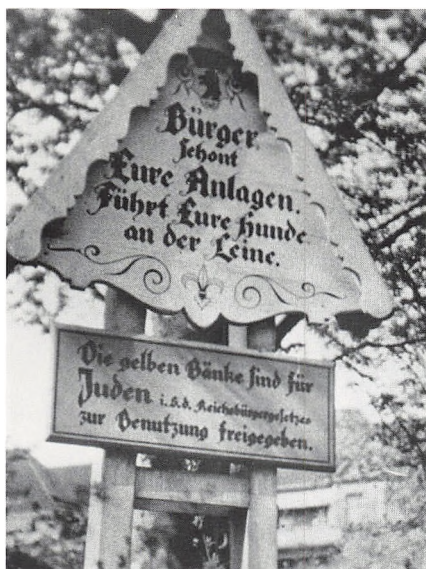 Bürger
schont
Eure Anlagen.
Führt Eure Hunde
an der Leine.
Die gelben Bänke sind für
Juden i.S.d. Reichsbürgergesetzes
zur Benutzung freigegeben.